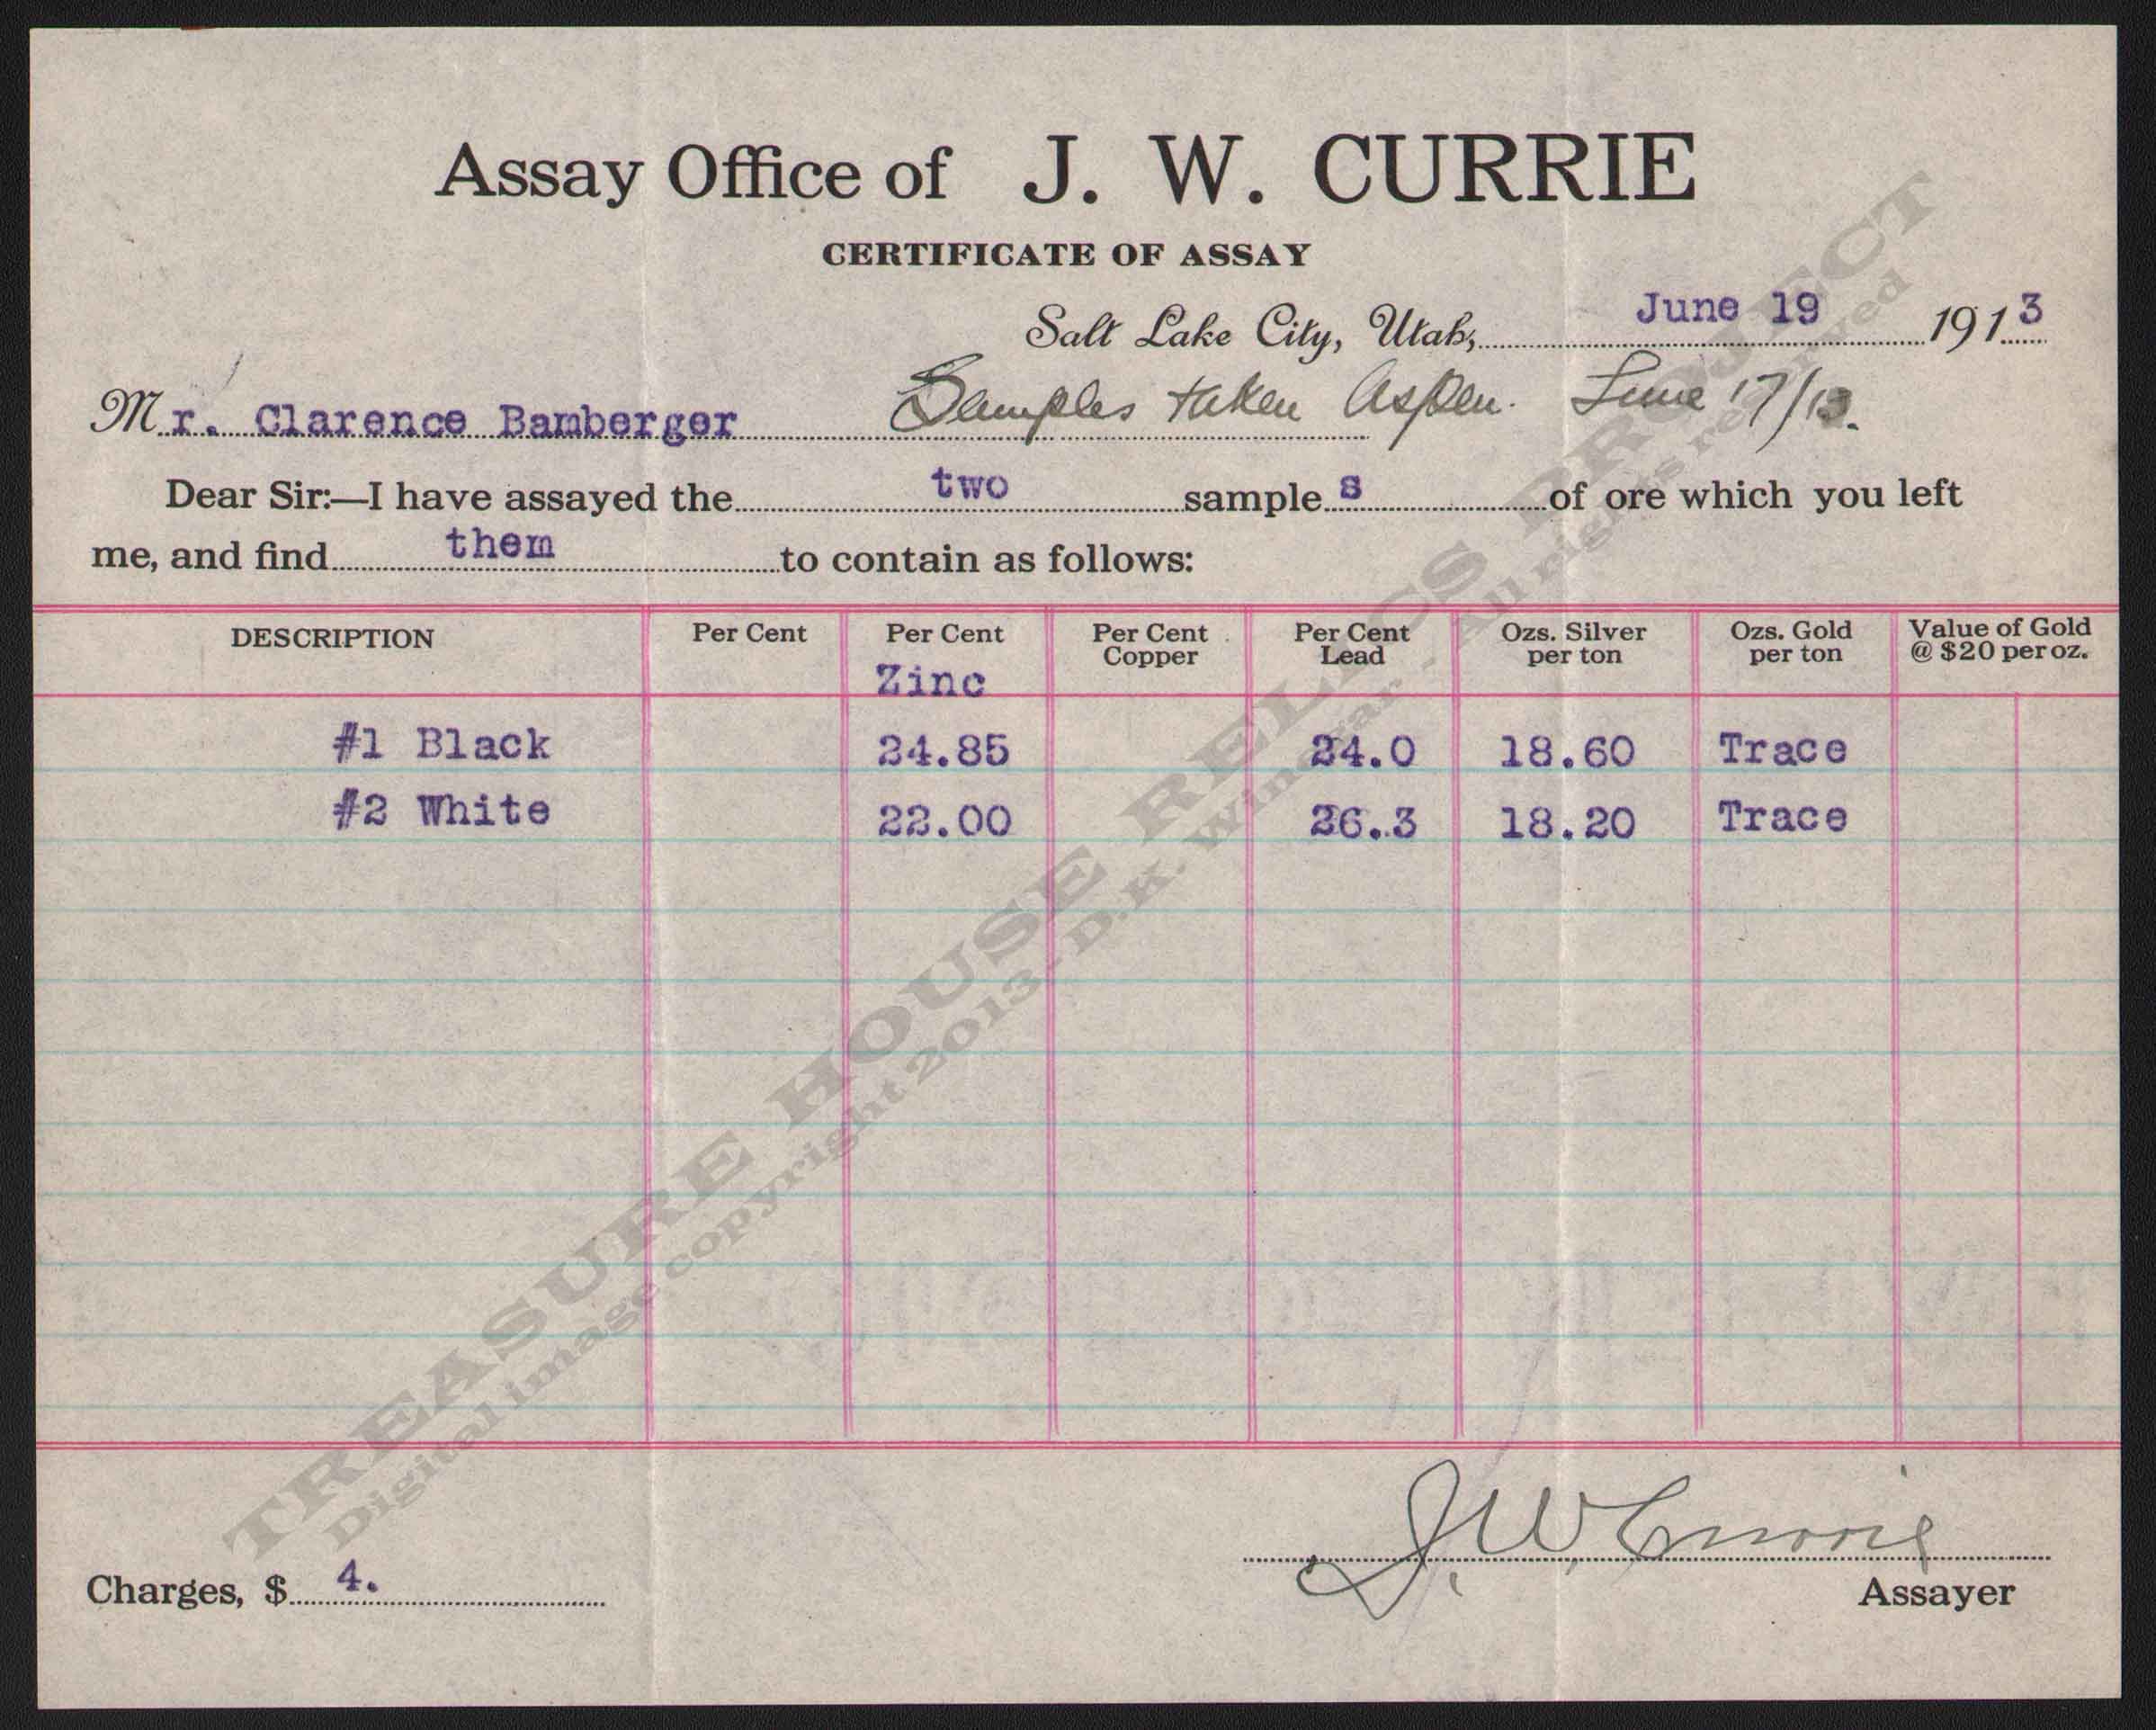 Assay Office of J. W. CURRIE
CERTIFICATE OF ASSAY
Salt Lake City, Utah, June 19 1913
Mr. Clarence Bamberger Samples taken Aspen. June 17/13.
Dear Sir:—I have assayed the two samples of ore which you left
me, and find them to contain as follows:
DESCRIPTION Per Cent Per Cent Zinc Per Cent Copper Per Cent Lead Ozs. Silver per ton Ozs. Gold per ton Value of Gold @ $20 per oz.
#1 Black 24.85 24.0 18.60 Trace
#2 White 22.00 26.3 18.20 Trace
J. W. Currie
Charges, $ 4. Assayer
TREASURE HOUSE RELICS PROJECT
Digital image copyright 2013 - D.K. Windwar - All rights reserved